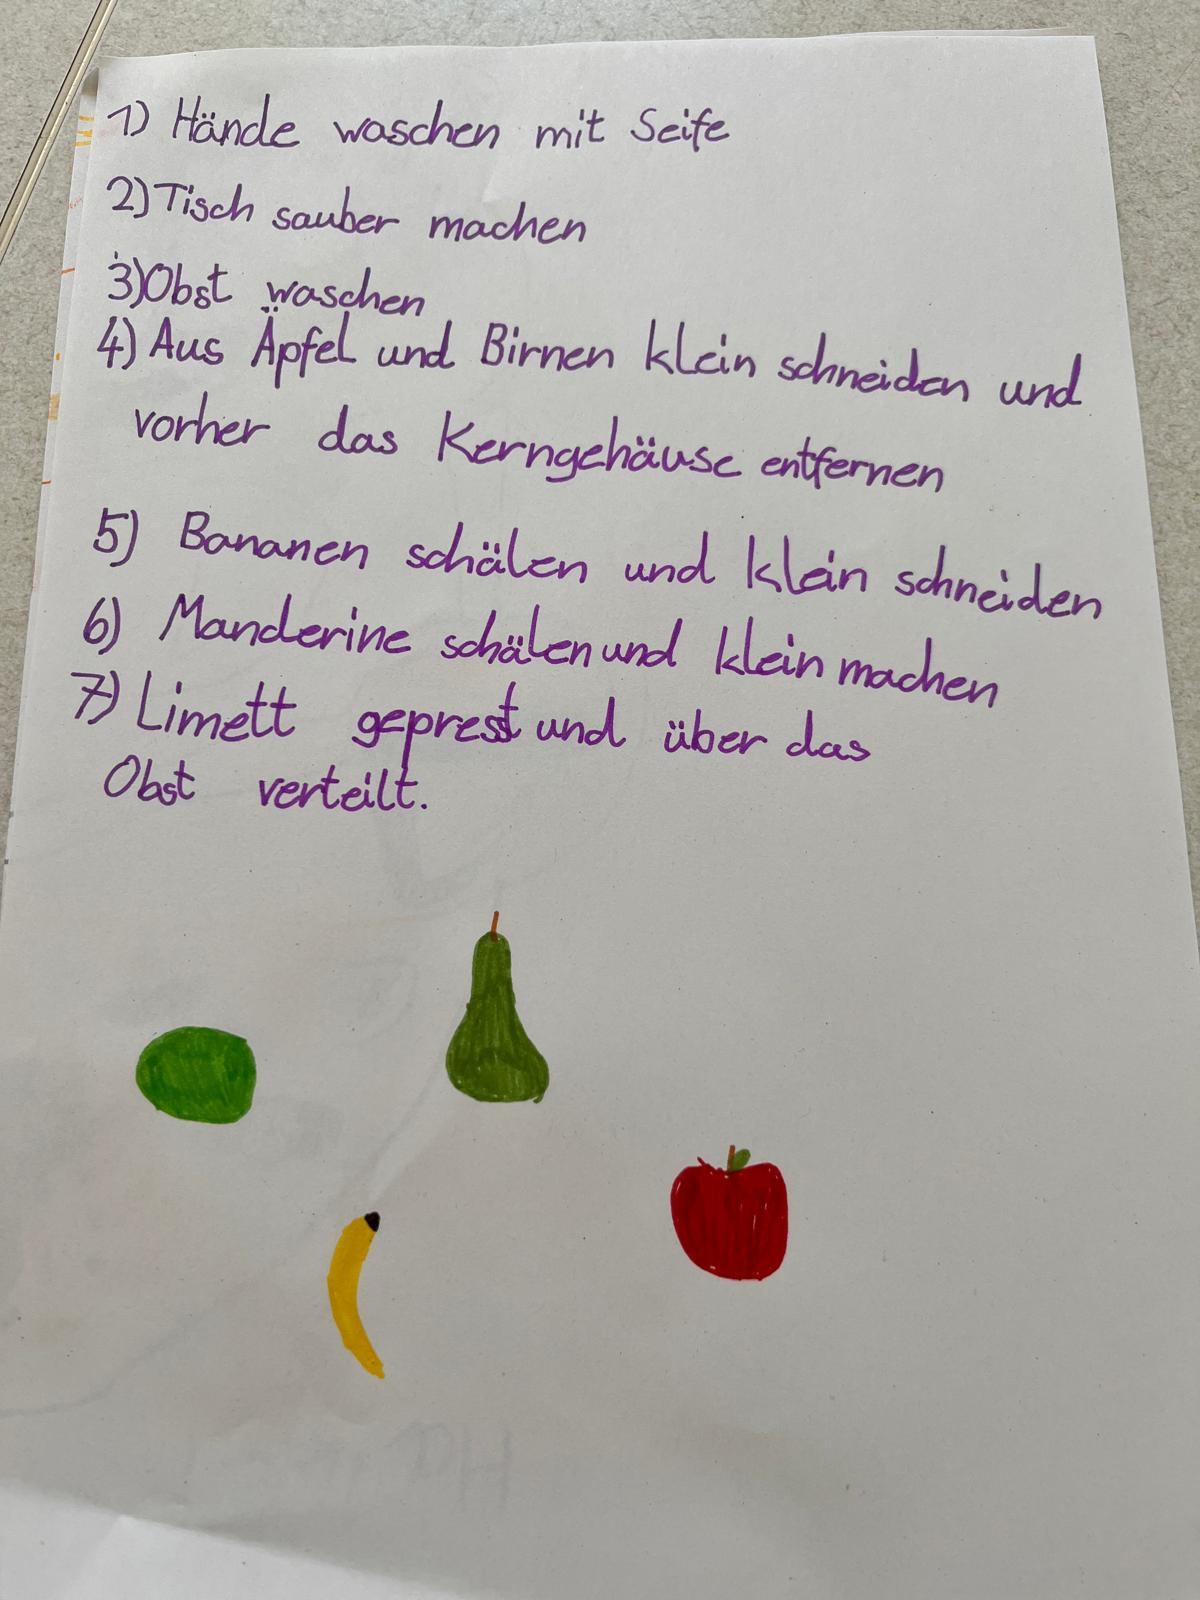 1) Hände waschen mit Seife
2) Tisch sauber machen
3) Obst waschen
4) Aus Äpfel und Birnen klein schneiden und
vorher das Kerngehäuse entfernen
5) Bananen schälen und klein schneiden
6) Manderine schälen und klein machen
7) Limett geprest und über das
Obst verteilt.